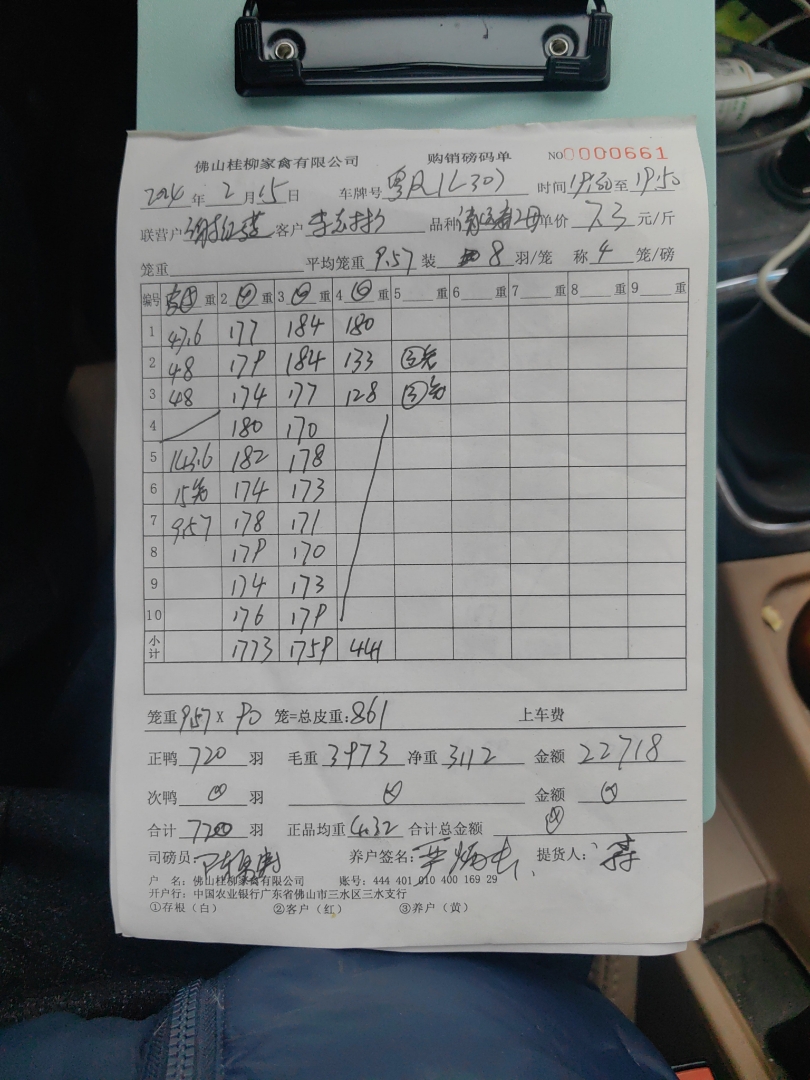 佛山桂柳家禽有限公司 购销磅码单 NO0000661
2024年2月15日 车牌号 时间 至19:50
联营户 客户 品种 单价7.3元/斤
笼重 平均笼重9.57装8羽/笼 称4笼/磅
编号 重 2 重 3 重 4 重 5 重 6 重 7 重 8 重 9 重
1 47.6 177 184 180
2 48 179 184 133 ③笼
3 48 174 177 128 ③笼
4 180 170
5 143.6 182 178
6 15笼 174 173
7 9.57 178 171
8 179 170
9 174 173
10 176 179
小计 1773 1759 441
笼重9.57X 90 笼=总皮重:861 上车费
正鸭720羽 毛重3973 净重3112 金额22718
次鸭0羽 0 金额0
合计720羽 正品均重4.32 合计总金额
司磅员: 养户签名: 提货人:
户 名: 佛山桂柳家禽有限公司 账号: 444 401 010 400 169 29
开户行: 中国农业银行广东省佛山市三水区三水支行
①存根（白） ②客户（红） ③养户（黄）